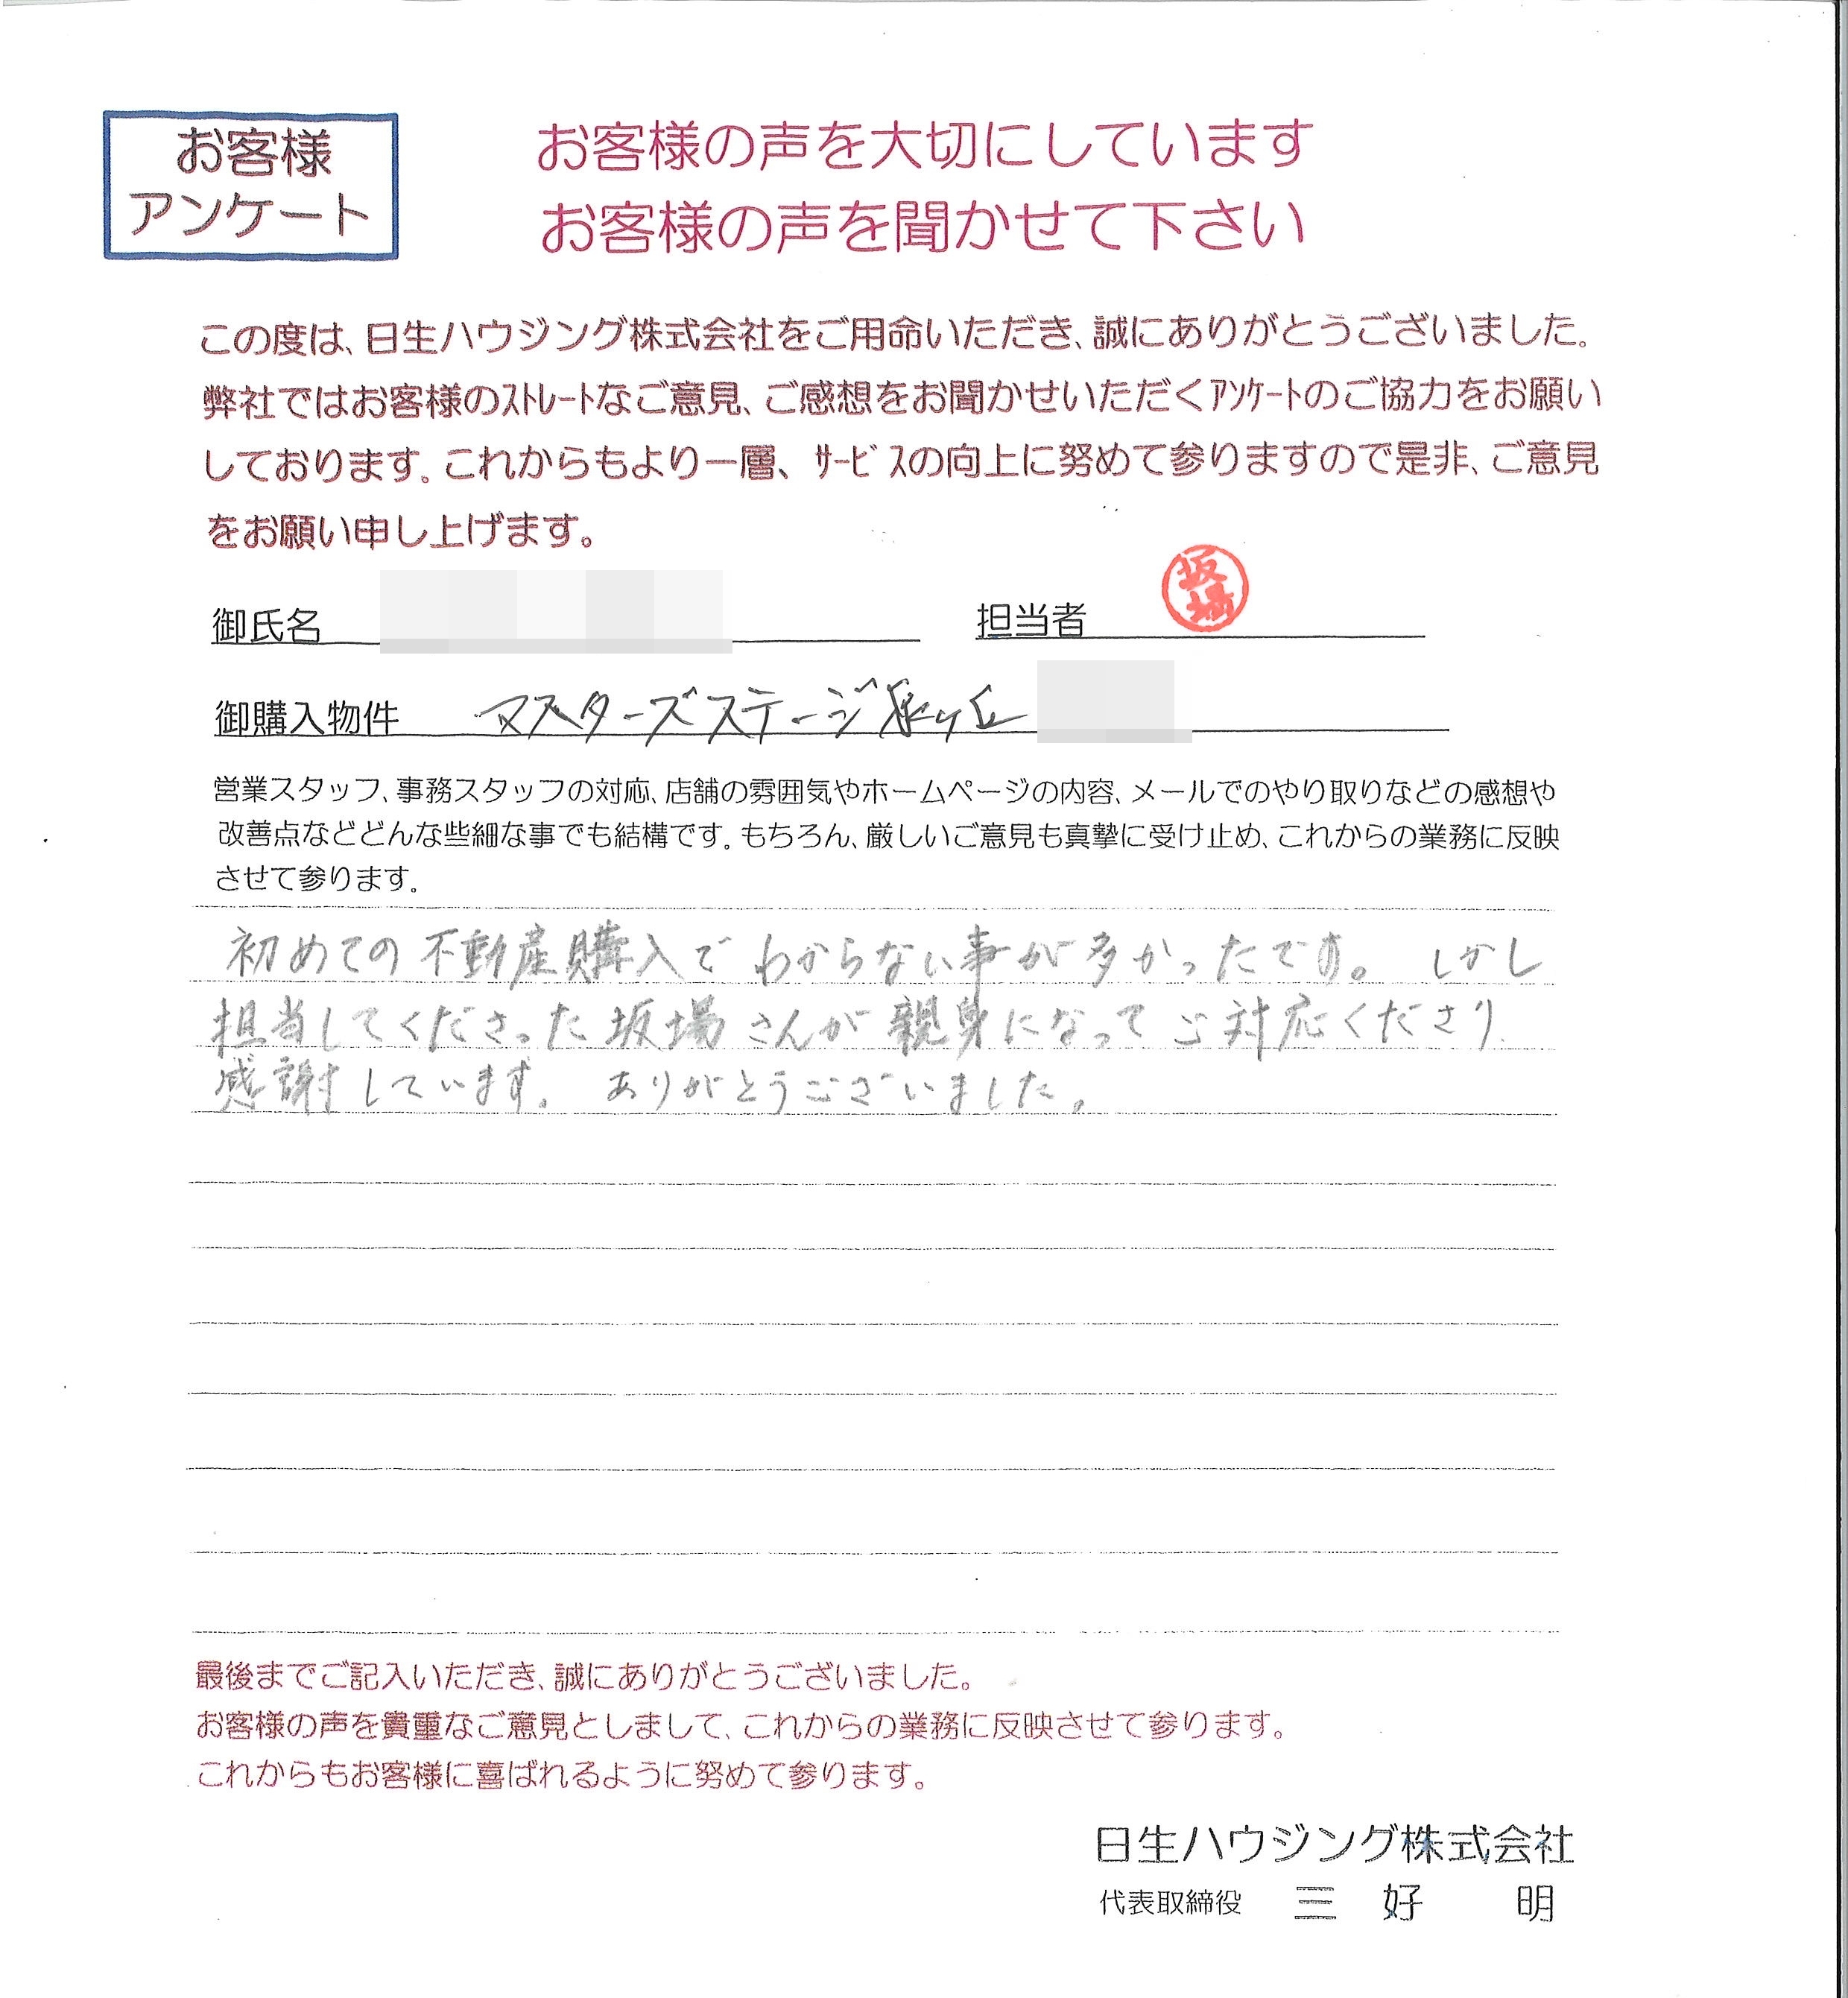 お客様
アンケート
お客様の声を大切にしています
お客様の声を聞かせて下さい
この度は、日生ハウジング株式会社をご用命いただき、誠にありがとうございました。
弊社ではお客様のｽﾄﾚｰﾄなご意見、ご感想をお聞かせいただくｱﾝｹｰﾄのご協力をお願い
しております。これからもより一層、ｻｰﾋﾞｽの向上に努めて参りますので是非、ご意見
をお願い申し上げます。
御氏名 担当者 坂場
御購入物件 マスターズステージ泉ヶ丘
営業スタッフ、事務スタッフの対応、店舗の雰囲気やホームページの内容、メールでのやり取りなどの感想や
改善点などどんな些細な事でも結構です。もちろん、厳しいご意見も真摯に受け止め、これからの業務に反映
させて参ります。
初めての不動産購入でわからない事が多かったです。しかし
担当してくださった坂場さんが親身になってご対応くださり、
感謝しています。ありがとうございました。
最後までご記入いただき、誠にありがとうございました。
お客様の声を貴重なご意見としまして、これからの業務に反映させて参ります。
これからもお客様に喜ばれるように努めて参ります。
日生ハウジング株式会社
代表取締役 三好 明